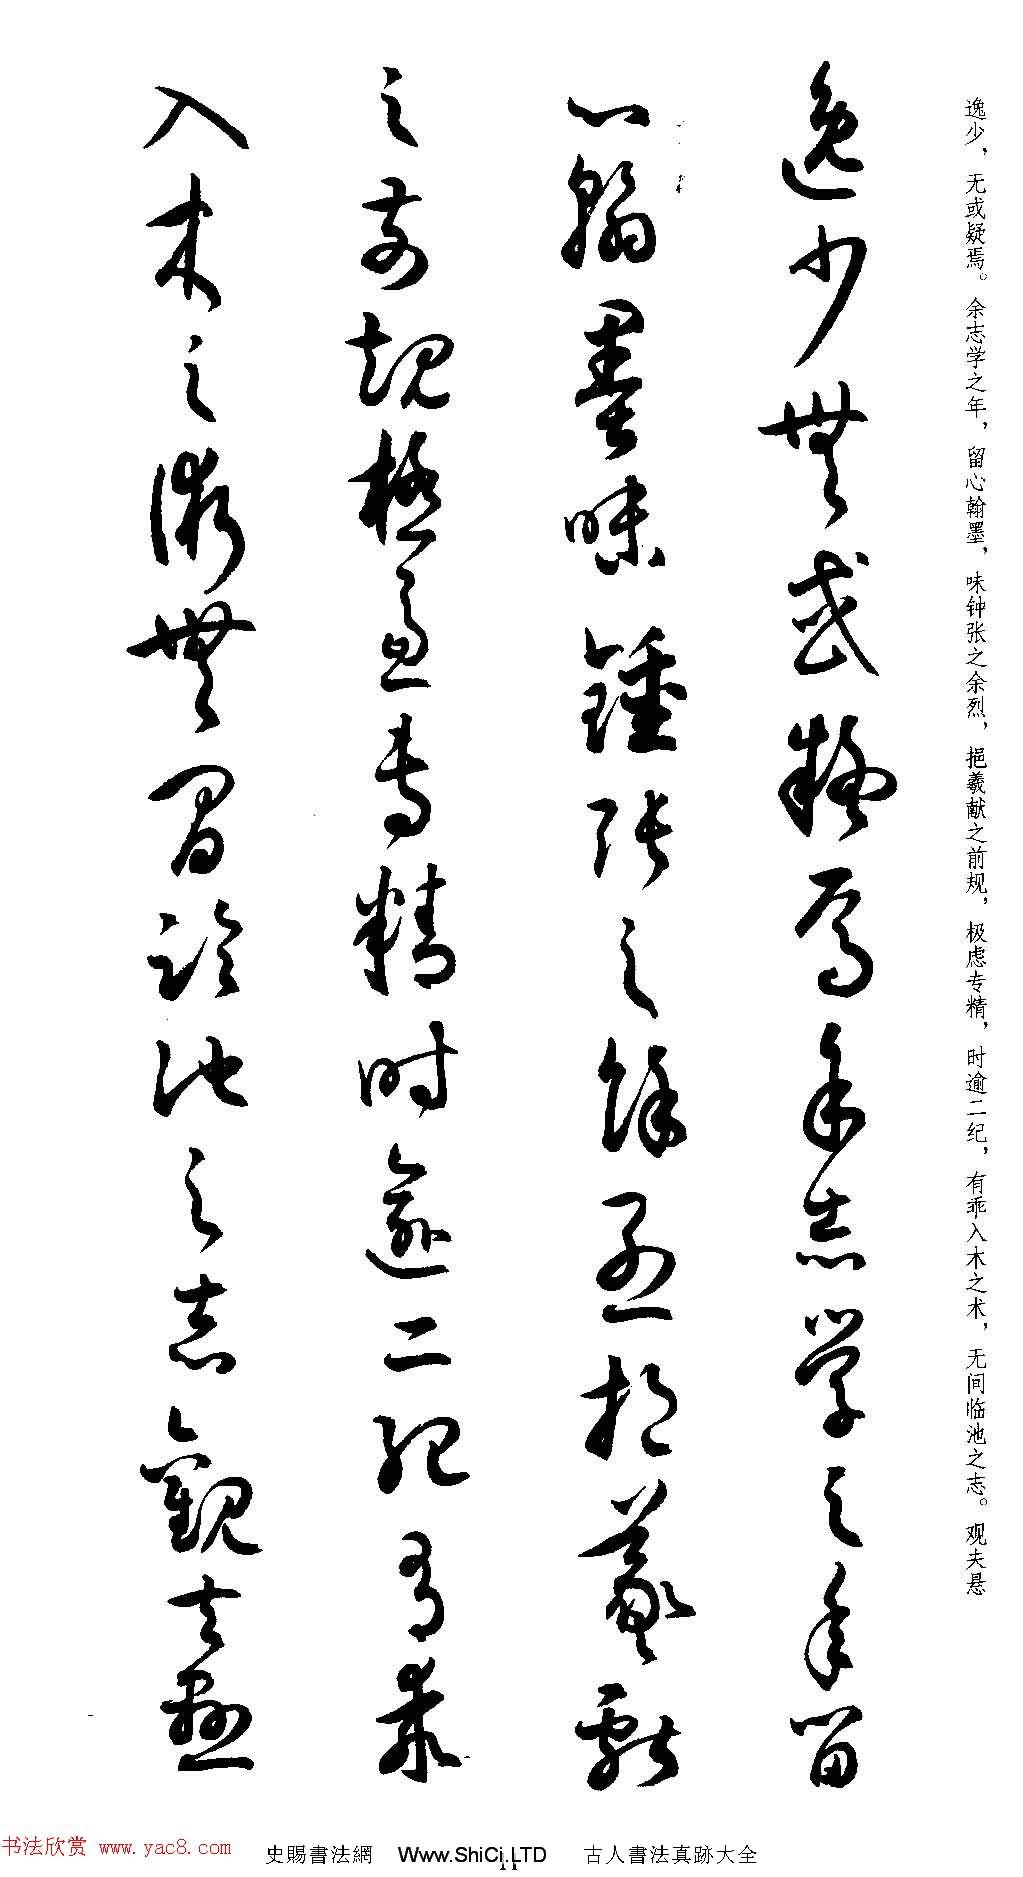 逸少，无或疑焉。余志学之年，留心翰墨，味钟张之余烈，挹羲献之前规，极虑专精，时逾二纪，有乖入木之术，无间临池之志。观夫悬
逸少無或疑焉余志學之年留
心翰墨味鍾張之餘烈挹羲獻
之前規極慮專精時逾二紀有乖
入木之術無間臨池之志觀夫懸
书法欣赏 www.yac8.com
史賜書法網 Www.ShiCi.LTD 古人書法真跡大全
11